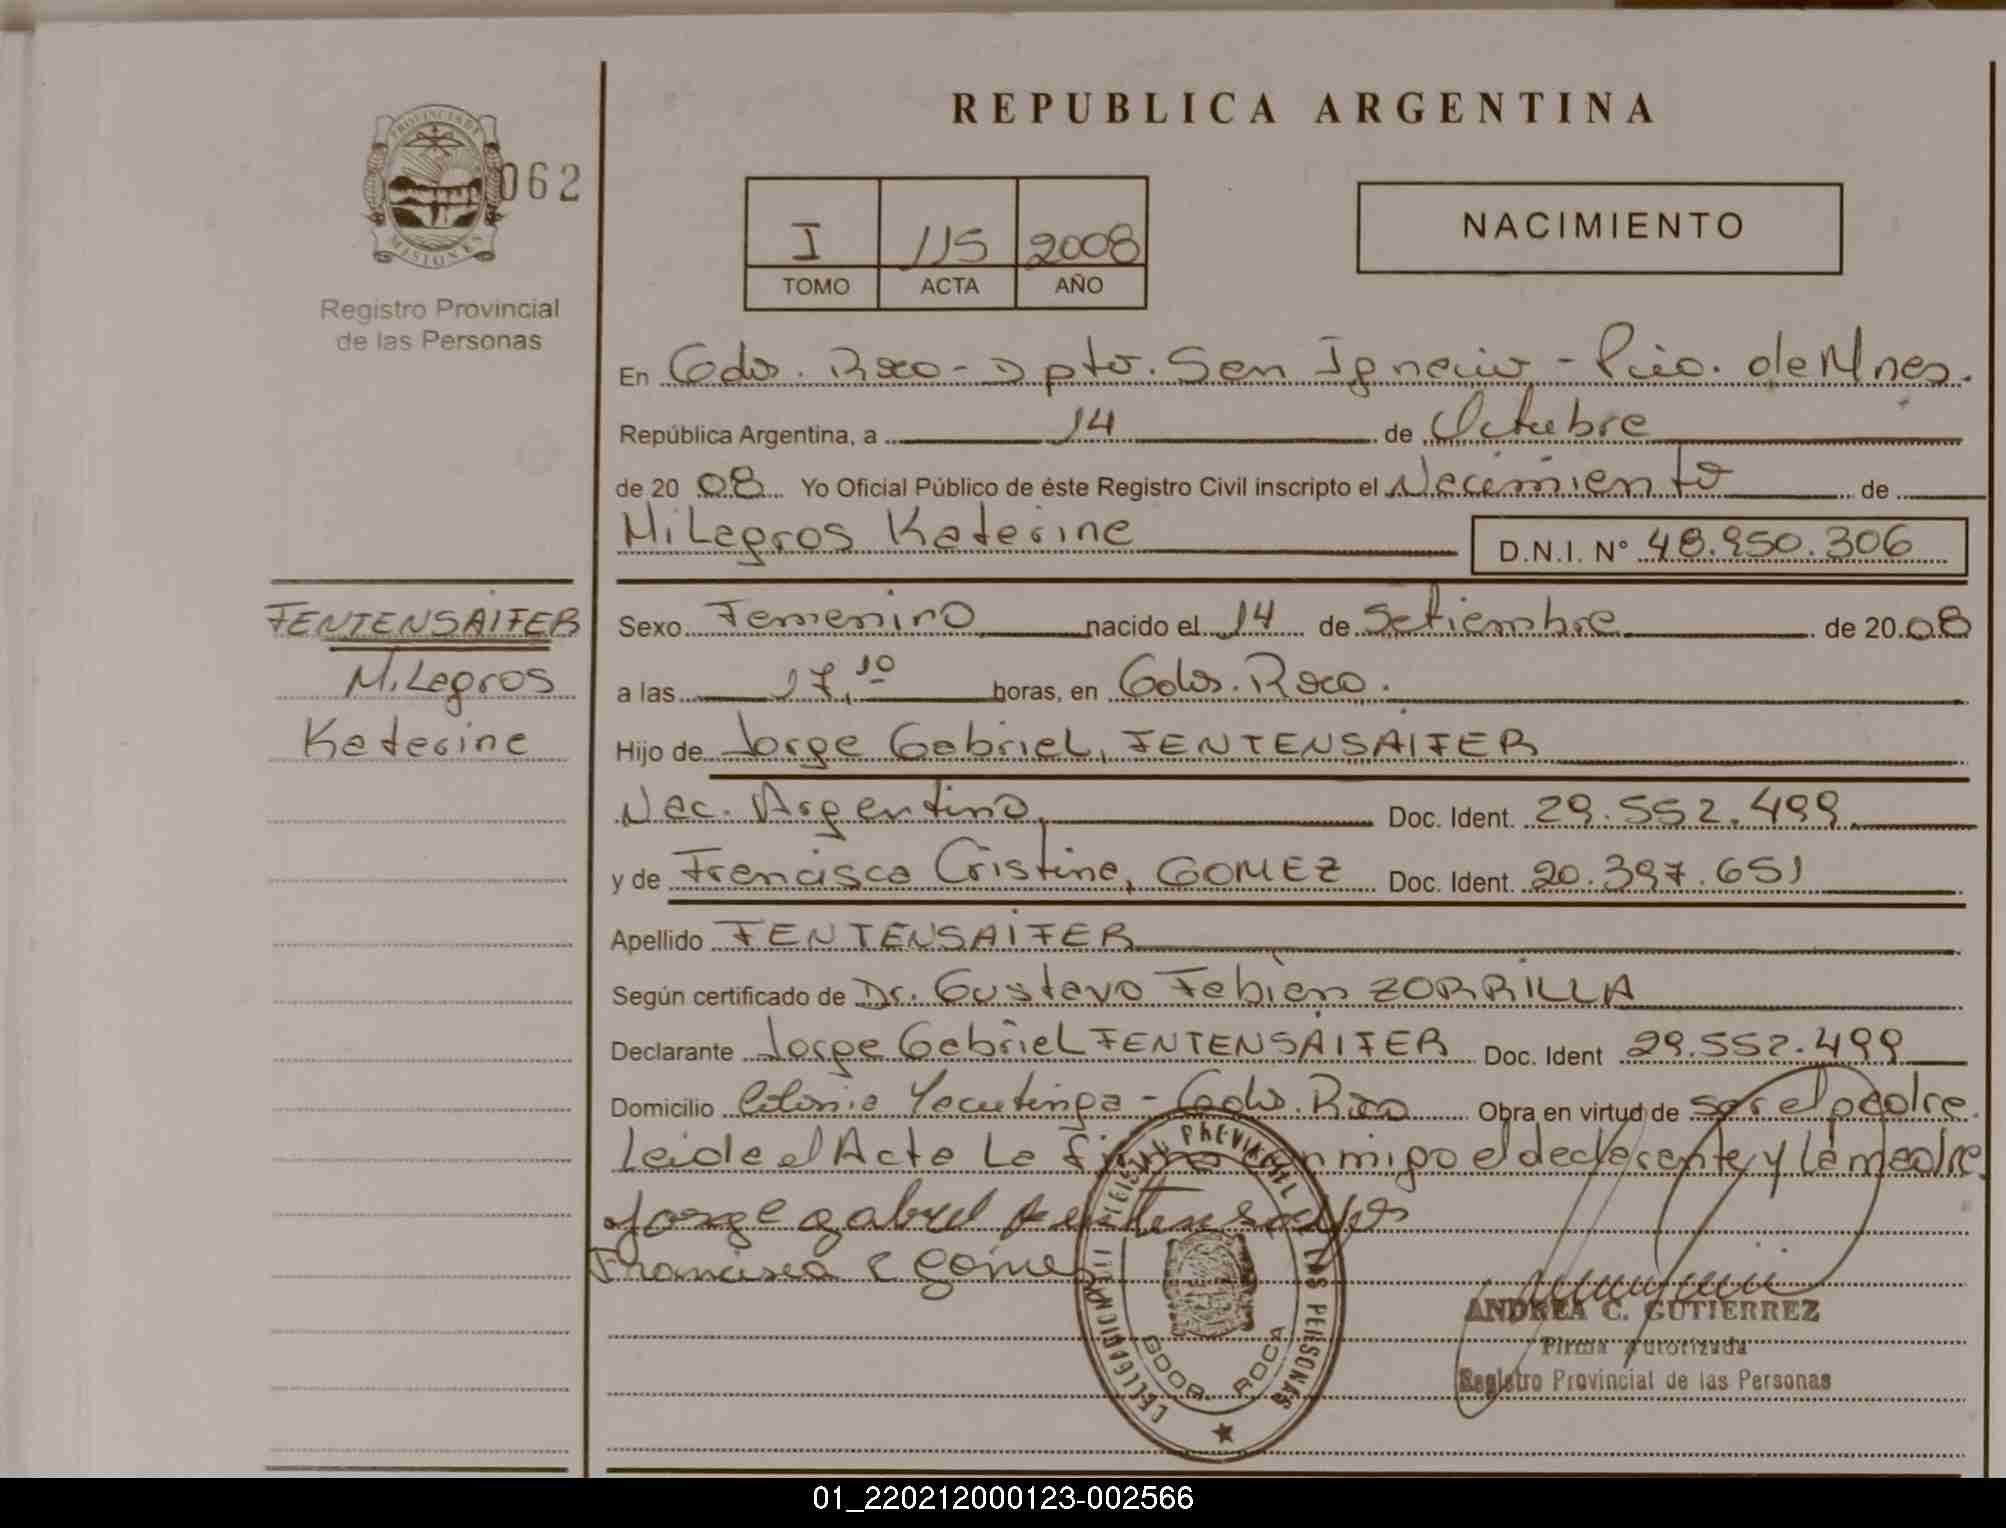 REPUBLICA ARGENTINA
PROVINCIA DE
MISIONES
062
Registro Provincial
de las Personas
I 115 2008
TOMO ACTA AÑO
NACIMIENTO
En Gdor. Roca - Dpto. San Ignacio - Pcia. de Mnes.
República Argentina, a 14 de Octubre
de 20 08 Yo Oficial Público de éste Registro Civil inscripto el Nacimiento de
Milagros Katerine D.N.I. N° 48.950.306
FENTENSAIFER
Milagros
Katerine
Sexo Femenino nacido el 14 de Setiembre de 20 08
a las 17,10 horas, en Gdor. Roca.
Hijo de Jorge Gabriel, FENTENSAIFER
Nac. Argentino, Doc. Ident. 29.552.499
y de Francisca Cristina, GOMEZ Doc. Ident. 20.397.651
Apellido FENTENSAIFER
Según certificado de Dr. Gustavo Fabian ZORRILLA
Declarante Jorge Gabriel FENTENSAIFER Doc. Ident 29.552.499
Domicilio Colonia Yacutinga - Gdor. Roca Obra en virtud de ser el padre.
Leida el Acta La firma conmigo el declarante y la madre.
Jorge gabriel
Francisca C Gomez
GDOR. ROCA
ANDREA C. GUTIERREZ
Firma Autorizada
Registro Provincial de las Personas
01_220212000123-002566